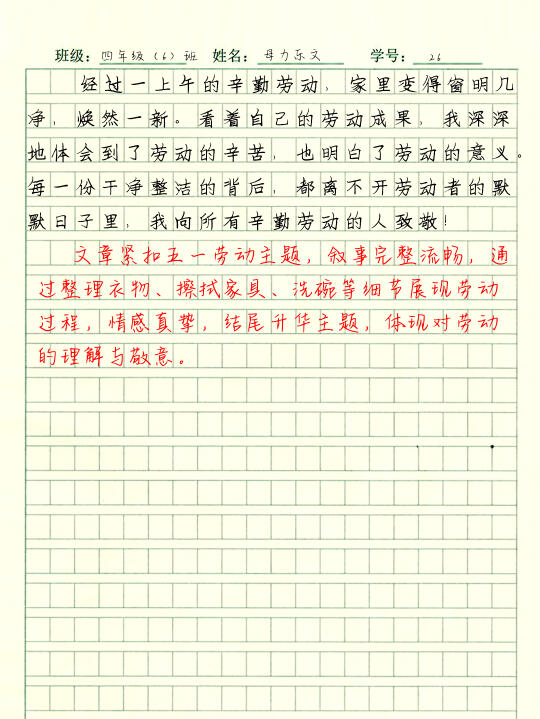 班级：四年级（6）班 姓名：母力乐文 学号：26
经过一上午的辛勤劳动，家里变得窗明几
净，焕然一新。看着自己的劳动成果，我深深
地体会到了劳动的辛苦，也明白了劳动的意义。
每一份干净整洁的背后，都离不开劳动者的默
默日子里，我向所有辛勤劳动的人致敬！
文章紧扣五一劳动主题，叙事完整流畅，通
过整理衣物、擦拭家具、洗碗等细节展现劳动
过程，情感真挚，结尾升华主题，体现对劳动
的理解与敬意。